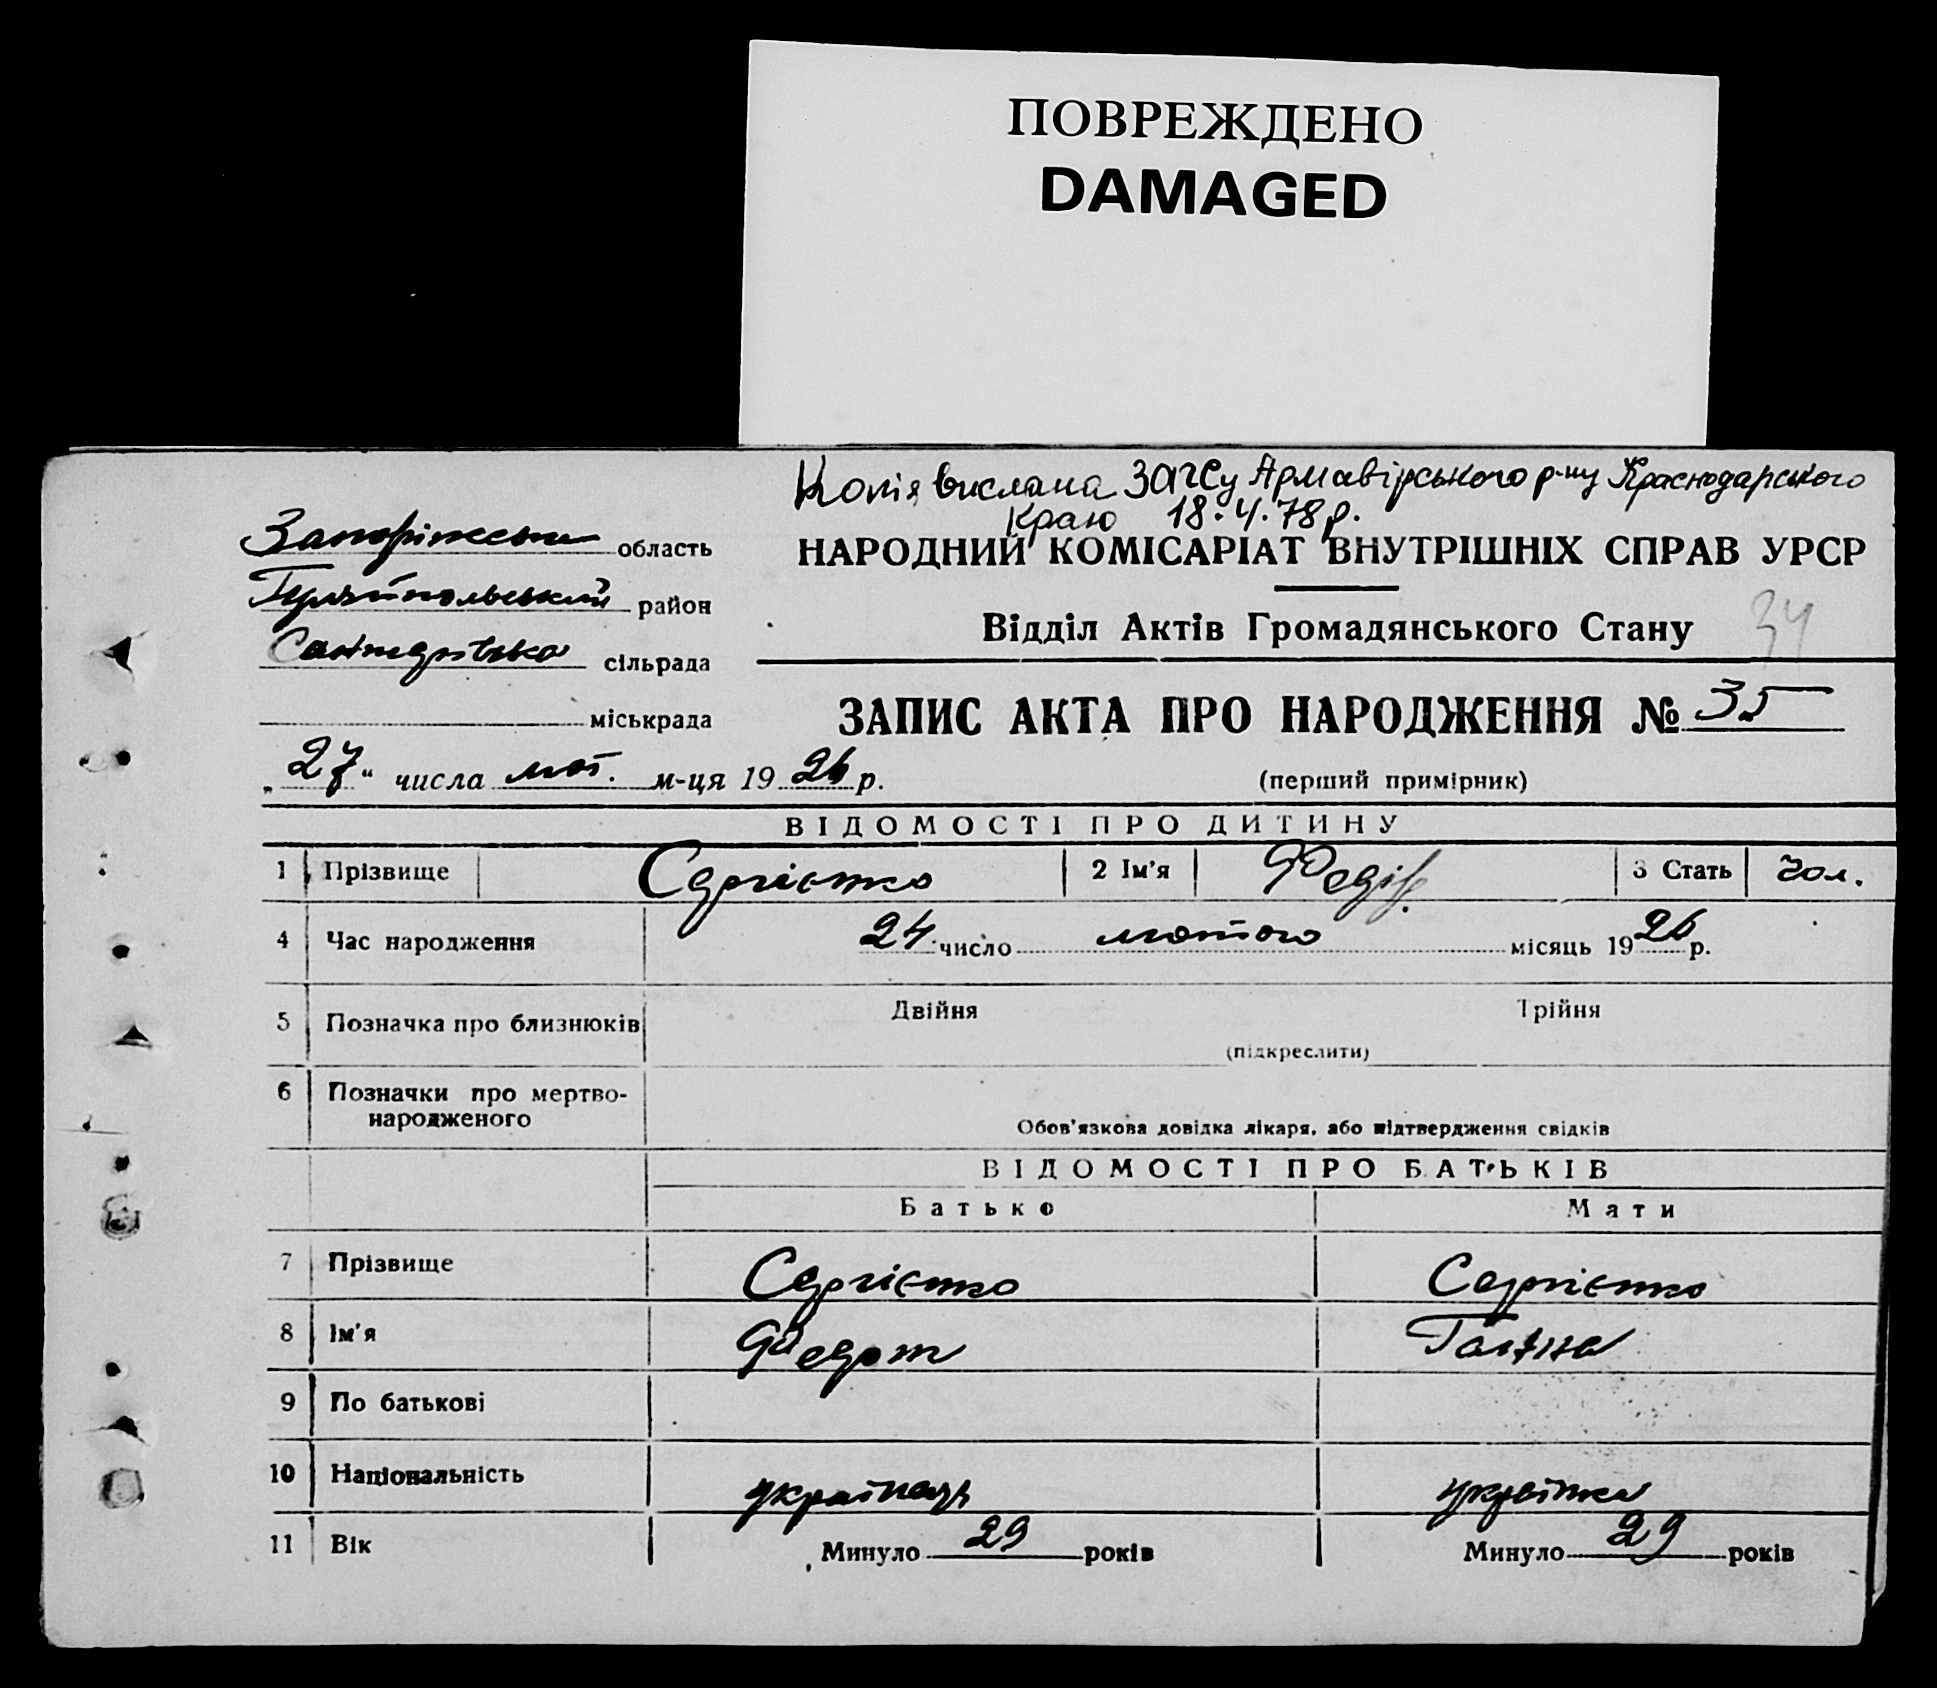 ПОВРЕЖДЕНО
DAMAGED
Копія вислана Загсу Армавірського р-ну Краснодарського
краю 18.4.78 р.
Запоріжська область
НАРОДНИЙ КОМІСАРІАТ ВНУТРІШНІХ СПРАВ УРСР
Гуляйпольський район
Відділ Актів Громадянського Стану 34
сільрада
міськрада
ЗАПИС АКТА ПРО НАРОДЖЕННЯ № 35
„27“ числа лют. м-ця 1926 р.
(перший примірник)
ВІДОМОСТІ ПРО ДИТИНУ
1 Прізвище Сергієнко 2 Ім'я Федір 3 Стать Чол.
4 Час народження 24 число лютого місяць 1926 р.
5 Позначка про близнюків Двійня Трійня
(підкреслити)
6 Позначки про мертво-
народженого
Обов'язкова довідка лікаря, або підтвердження свідків
ВІДОМОСТІ ПРО БАТЬКІВ
Батько Мати
7 Прізвище Сергієнко Сергієнко
8 Ім'я
9 По батькові
10 Національність українець українка
11 Вік Минуло 29 років Минуло 29 років